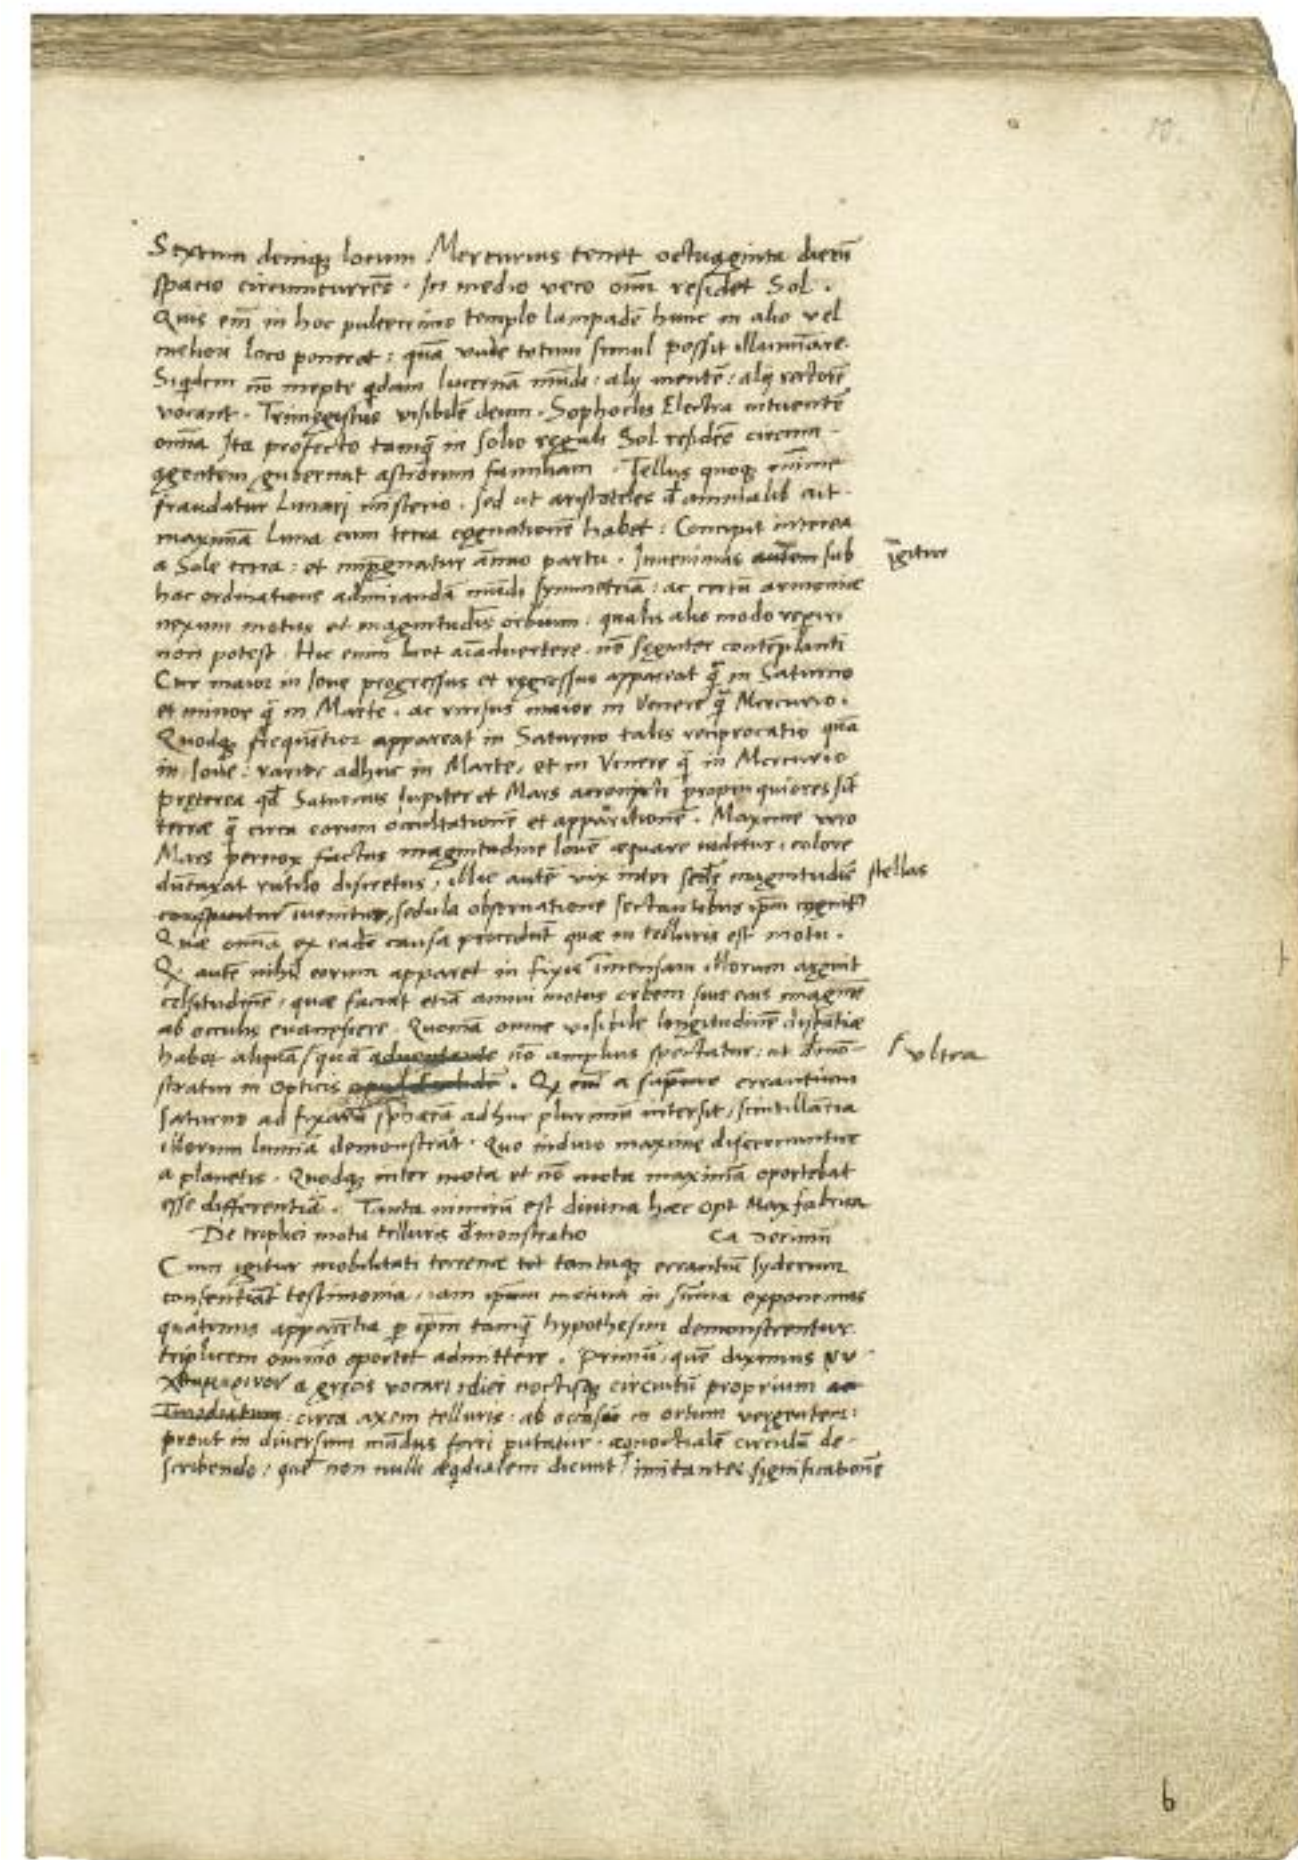 10.
Sextum deniq; locum Mercurius tenet octuaginta dierū
spacio circumcurrēs . In medio vero omī residet Sol .
Quis em̄ in hoc pulcerrimo templo lampadē hanc in alio vel
meliori loco poneret : quā vnde totum simul possit illuminare.
Siqdem nō inepte qdam lucernā mūdi : alij mentē : alij rectorē
vocant . Trimegistus visibilē deum . Sophoclis Electra intuentē
omīa Ita profecto tamq̄ in solio regali Sol residēs circum-
agentem gubernat astrorum familiam . Tellus quoq; minime
fraudatur Lunari ministerio . sed ut aristoteles d̄ animalib ait .
maximā Luna cum terra cognationē habet : Concipit interea
a Sole terra : et impregnatur annuo partu . Invenimus autem sub igitur
hac ordinatione admirandā mūdi symmetriā : ac certū armoniæ
nexum motus et magnitudīs orbium . qualis alio modo reperiri
non potest . Hic enim licet aīadvertere . nō segniter contēplanti
Cur maior in Iove progressus et regressus appareat q̄ in Saturno
et minor q̄ in Marte . ac rursus maior in Venere q̄ Mercurio .
Quodq; frequētior appareat in Saturno talis reciprocatio quā
in Iove : rarior adhuc in Marte, et in Venere q̄ in Mercurio
Præterea qd̄ Saturnus Iupiter et Mars acronycti propinquiores sīt
terræ q̄ circa eorum occultationē et apparitionē . Maxime vero
Mars pernox factus magnitudine Iovē æquare videtur : colore
dūtaxat rutilo discretus , illic autē vix inter secdē magnitudis stellas
invenitur, sedula observatione sectantibus ipm cognit
Quæ omīa ex eadē causa procedūt quæ in telluris est motu .
Qᵈ autē nihil eorum apparet in fixis īmensam illorum arguit
celsitudinē , quæ faciat etiā annui motus orbem sive eius imaginē
ab oculis evanescere . Quoniā omne visibile longitudinē distātiæ
habet aliquā quā nō amplius spectatur : ut dēmō- vltra
stratur in opticis . Qᵈ em̄ a supremo errantium
saturno ad fixarū sphærā adhuc plurimū intersit , scintillātia
illorum lumīa demonstrāt . Quo indicio maxime discernuntur
a planetis . Quodq; inter mota et nō mota maximā oportebat
esse differentiā . Tanta nimirū est divina hæc Opt Max fabrica
De triplici motu telluris dēmonstratio Ca Decimū
Cum igitur mobilitati terrenæ tot tantaq; errantiū syderum
consentiāt testimonia , iam ipsum motum in sūma exponemus
quatenus apparētia p ipsm tamq̄ hypothesim demonstrentur.
triplicem omnīo oportet admittere . Primū , quē diximus νυ-
χθημερινον a grecis vocari : diei noctisq; circuitū proprium ac
Imediatum : circa axem telluris . ab occasu in ortum vergentem :
prout in diversum mūdus ferri putatur . æquoctialē circulū de-
scribendo : quē non nulli æqdialem dicunt imitantes significationē
b